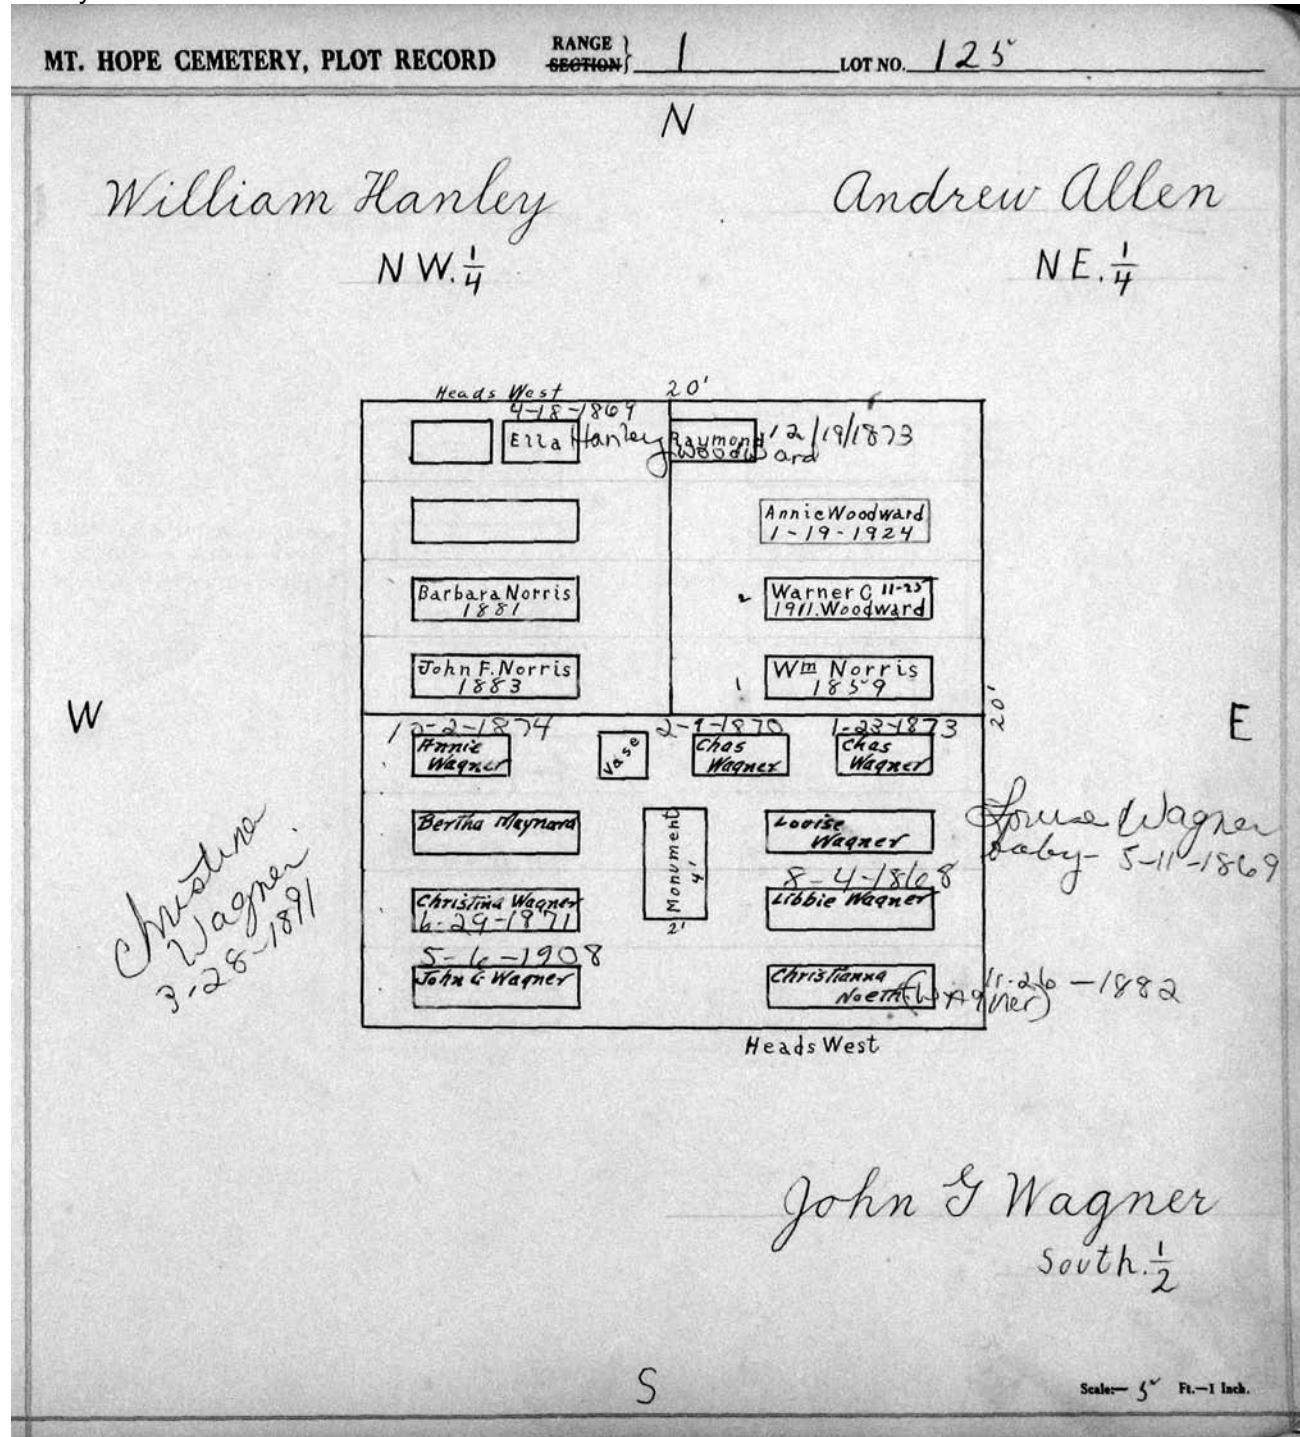 MT. HOPE CEMETERY, PLOT RECORD RANGE SECTION} 1 LOT NO. 125
N
William Hanley Andrew Allen
N W. 1/4 N E. 1/4
Heads West 20'
4-18-1869
Ella Hanley Raymond Woodward 12/19/1873
Annie Woodward
1-19-1924
Barbara Norris
1881
2 Warner C 11-25
1911. Woodward
John F. Norris
1883
1 Wm Norris
1859
W E
20'
12-2-1874 2-9-1870 1-23-1873
Annie
Wagner
Vase
Chas
Wagner
Chas
Wagner
Bertha Maynard
Monument
4'
2'
Louise
Wagner
Louisa Wagner
baby- 5-11-1869
8-4-1868
Christina Wagner
6-29-1971
Libbie Wagner
Christina
Wagner
3-28-1891
5-6-1908
John G Wagner
Christianna
Noeth (Wagner) 11-26-1882
Heads West
John G Wagner
South. 1/2
S
Scale:— 5 Ft.—1 Inch.